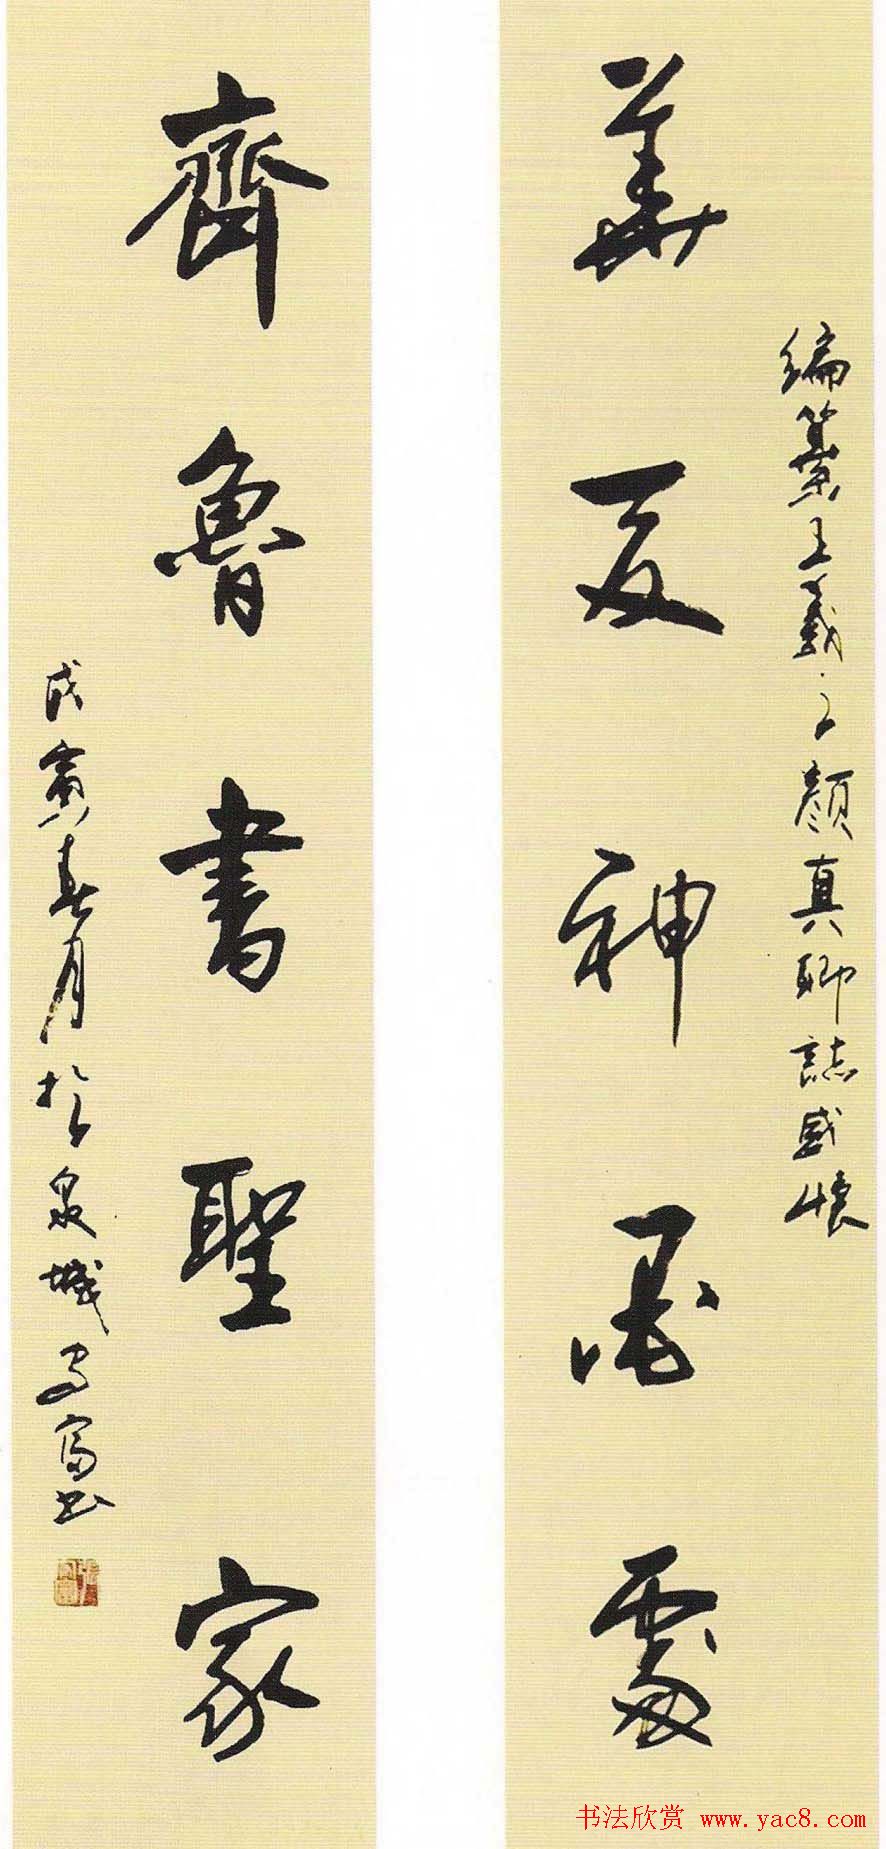 編纂王羲之顏真卿誌感懷
華夏神墨處
齊魯書聖家
戊寅春月於泉城守富书
书法欣赏 www.yac8.com